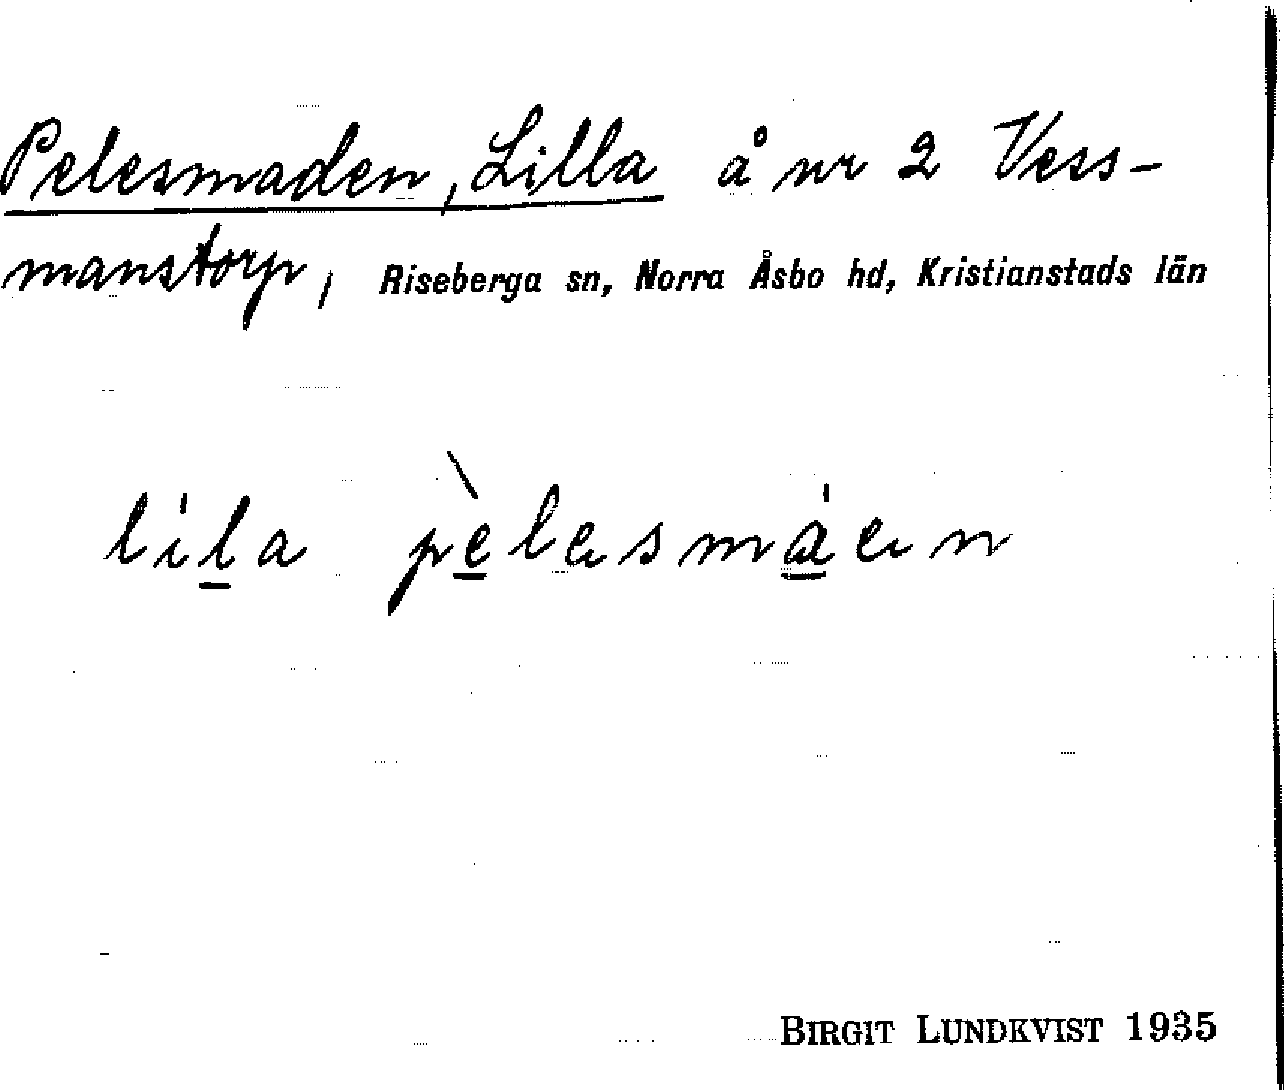 Pelesmaden, Lilla å nr 2 Vess-
manstorp, Riseberga sn, Norra Åsbo hd, Kristianstads län
li̍l̠a pè̠ləsma̠̍ən
BIRGIT LUNDKVIST 1935